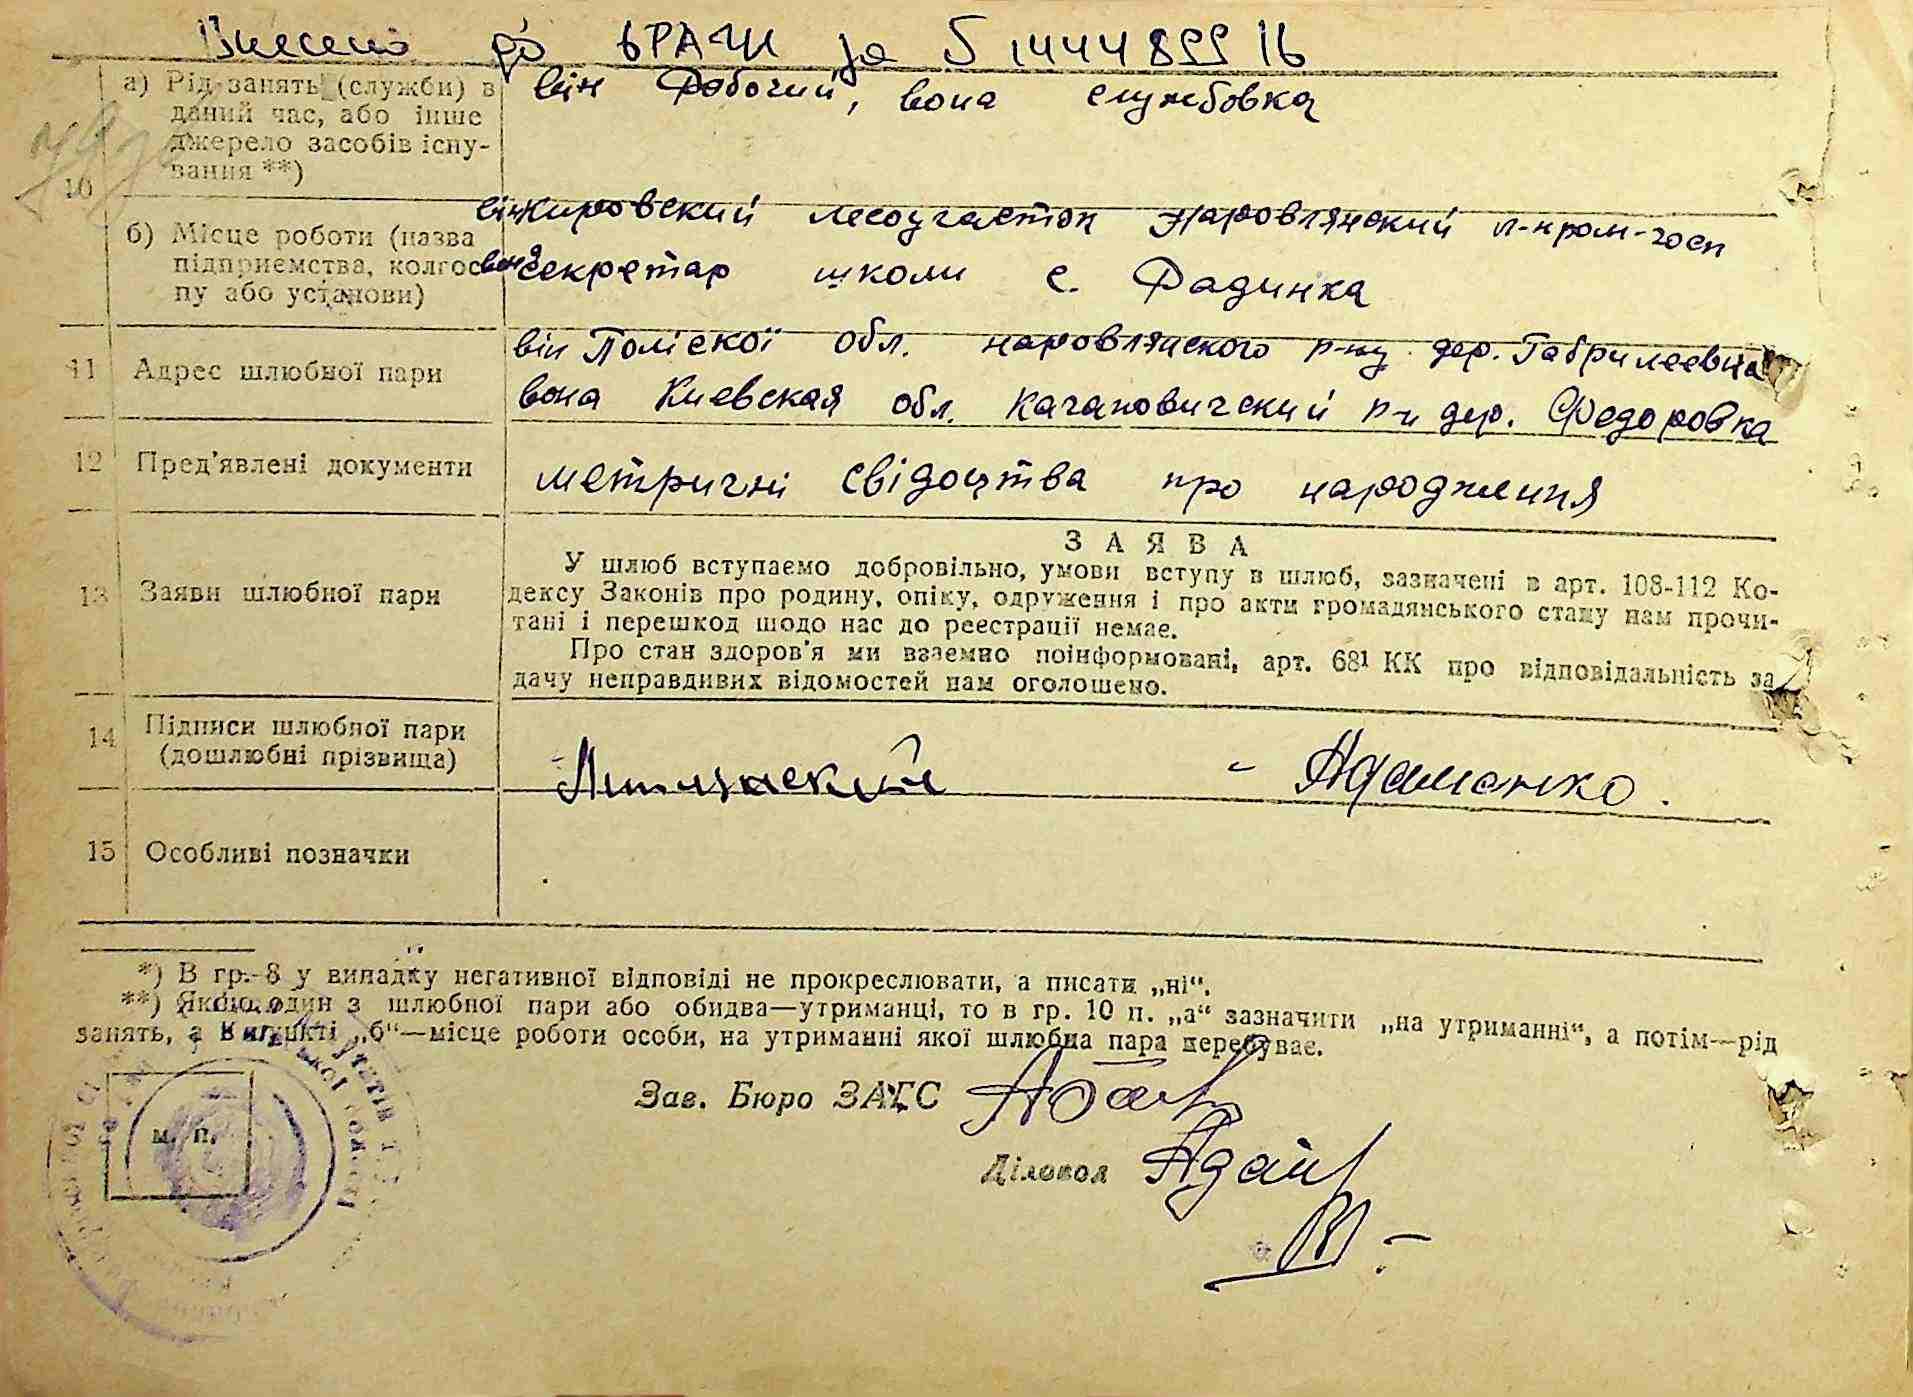 Внесено до ДРАЦС за № 1444899 16
10 а) Рід занять (служби) в даний час, або інше джерело засобів існування **)
він Рабочий, вона службовка
б) Місце роботи (назва підприємства, колгоспу або установи)
він Кировский лесоучасток Наровлянский л-пром-госп
вона секретар школи с. Радинка
11 Адрес шлюбної пари
він Поліскої обл. наровлянского р-ну дер. Габрилеевка
вона Киевская обл. Кагановичский р-н дер. Федоровка
12 Пред'явлені документи
метричні свідоцтва про народження
13 Заяви шлюбної пари
ЗАЯВА
У шлюб вступаємо добровільно, умови вступу в шлюб, зазначені в арт. 108-112 Ко-
дексу Законів про родину, опіку, одруження і про акти громадянського стану нам прочи-
тані і перешкод щодо нас до реєстрації немає.
Про стан здоров'я ми взаємно поінформовані, арт. 68¹ КК про відповідальність за
дачу неправдивих відомостей нам оголошено.
14 Підписи шлюбної пари
(дошлюбні прізвища)
- Адаменко.
15 Особливі позначки
*) В гр. 8 у випадку негативної відповіді не прокреслювати, а писати „ні“.
**) Якщо один з шлюбної пари або обидва—утриманці, то в гр. 10 п. „а“ зазначити „на утриманні“, а потім—рід
занять, а в пункті „б“—місце роботи особи, на утриманні якої шлюбна пара перебуває.
Зав. Бюро ЗАГС
Діловод
м. п.